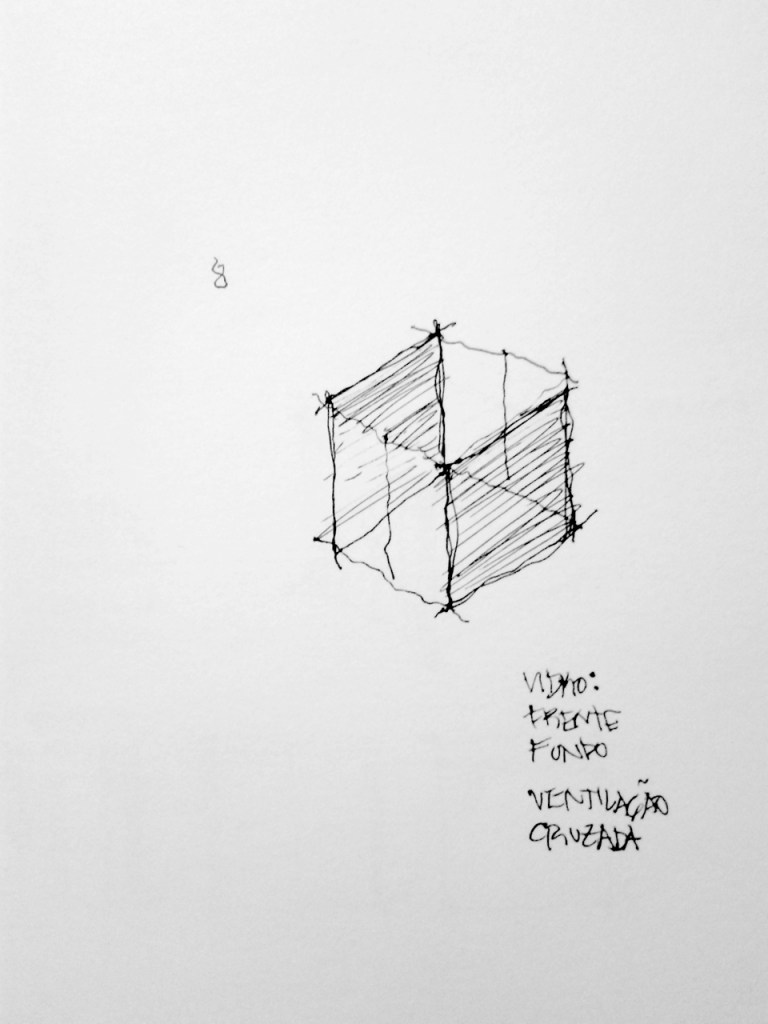 8
VIDRO:
FRENTE
FUNDO
VENTILAÇÃO
CRUZADA